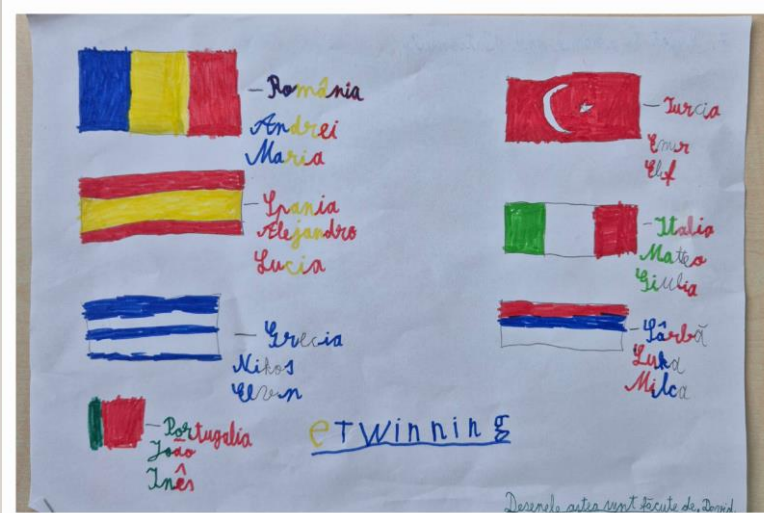 România
Andrei
Maria
Spania
Alejandro
Lucia
Grecia
Nikos
Portugalia
João
Inês
Turcia
Emir
Elif
Italia
Mateo
Giulia
Sârbă
Luka
Milca
eTwinning
Desenele astea sunt făcute de, David